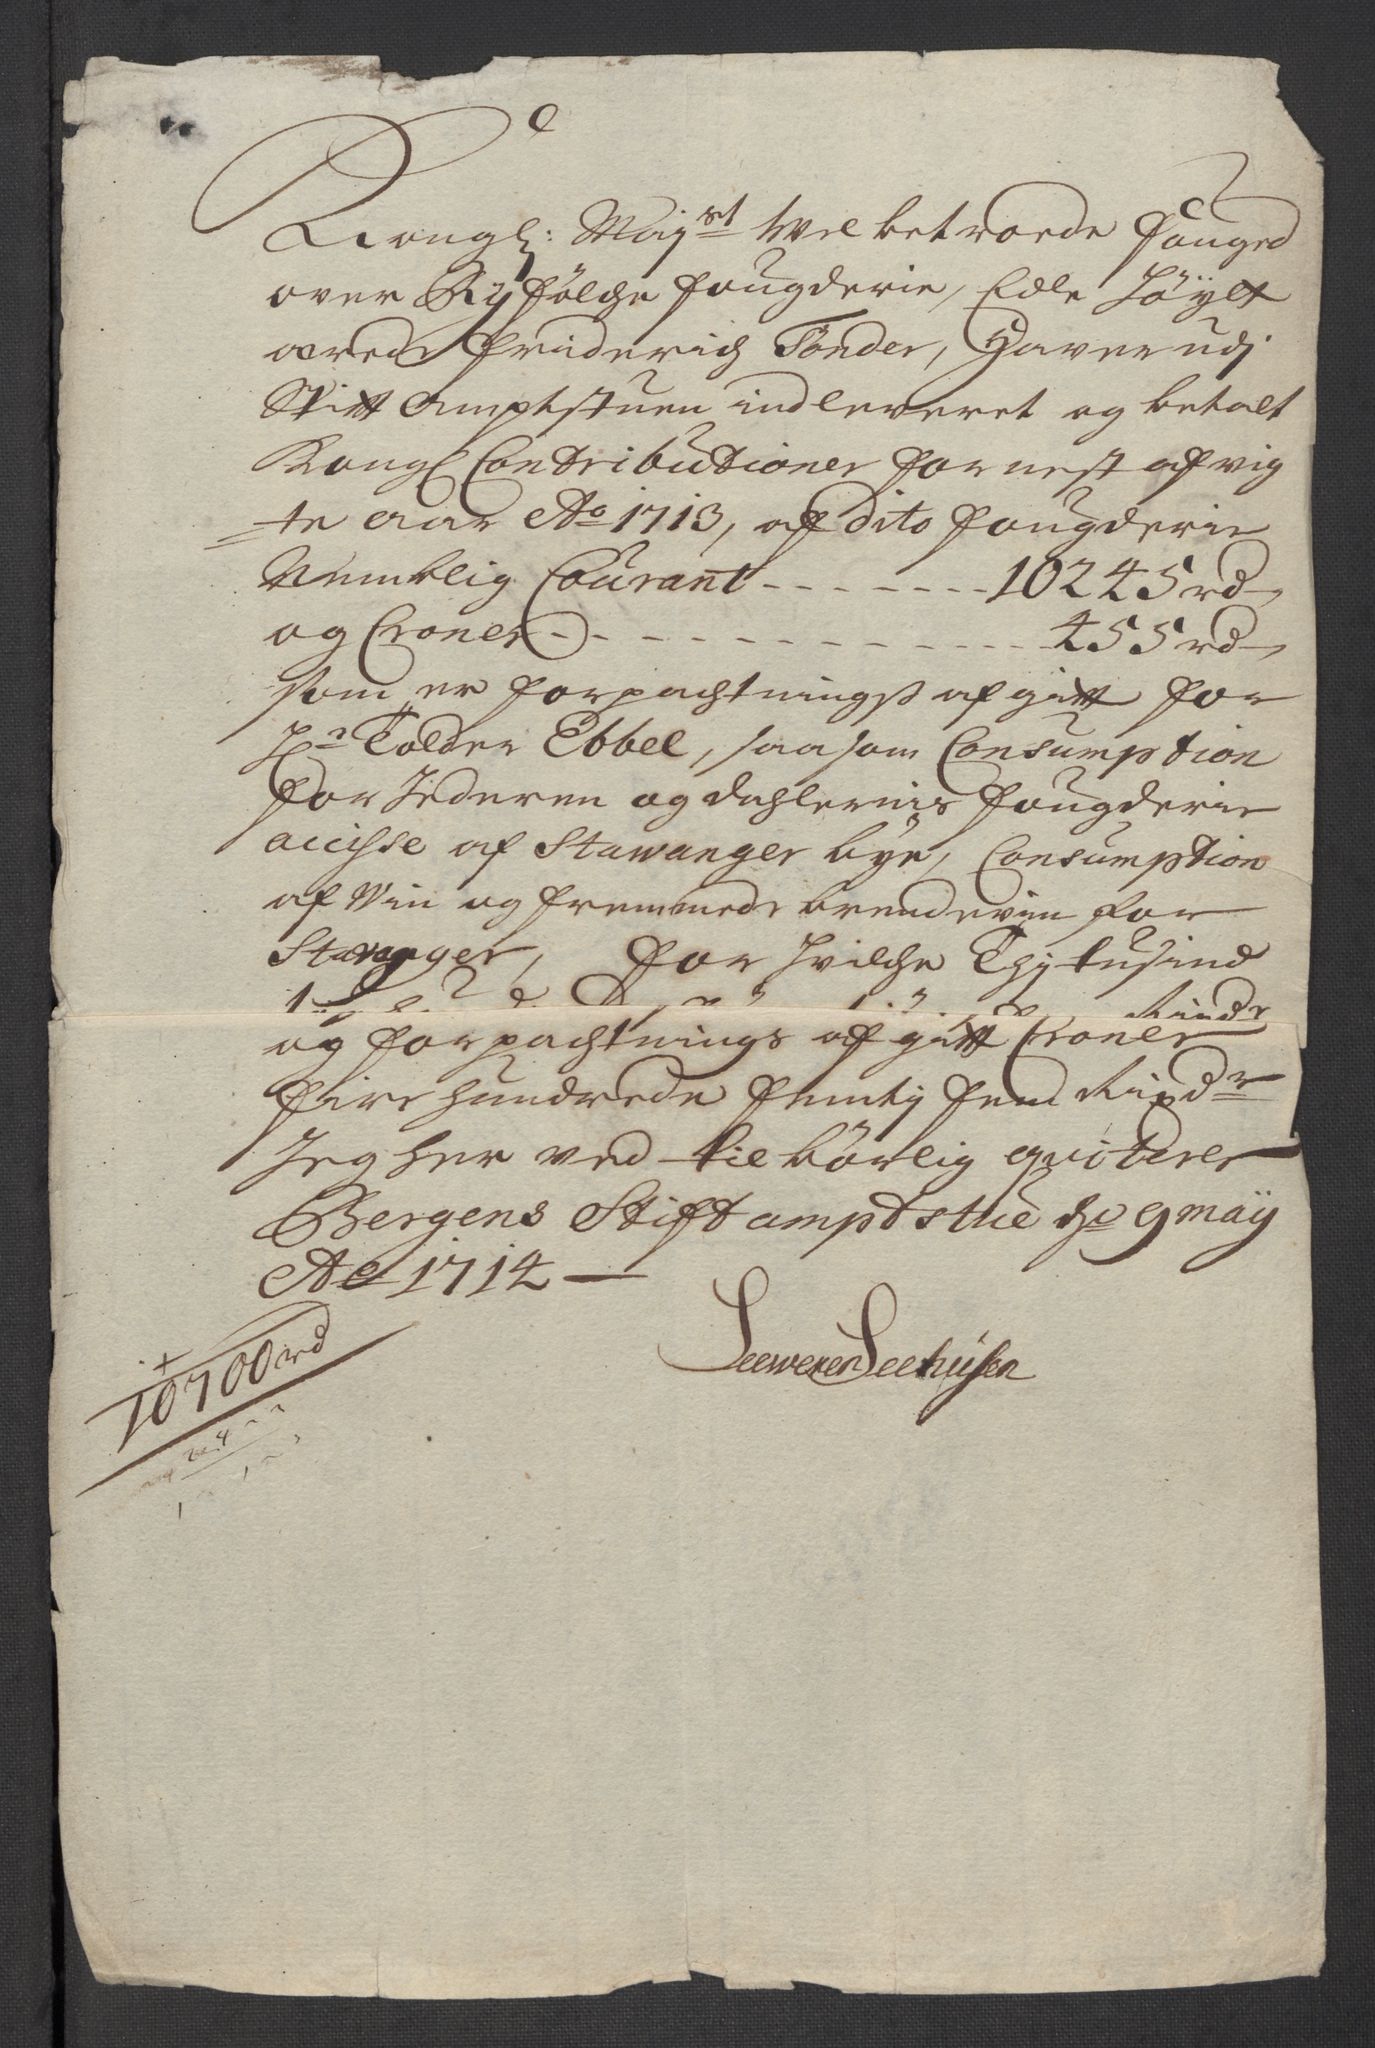 Kongl: Maÿst Wel betroede fouged
over Rÿfölche fougderie, Edle Höÿlt
ærede Friderich Tönder, Haver udj
Stift Amptstuen indleveret og betalt
Kongl Contributioner for nest afvig
=te aar Ao 1713, af dito fougderie
Nemblig Courant - - - - - - - 10245 rd
og Croner - - - - - - - - - - - 455 rd
som er forpachtningss afgift for
Hr Tolder Ebbel, saasom Consumption
for Jederen og dahlernis fougderie
accisse af Stawanger bye, Consumption
af Vin og fremmede brendevin for
Stavanger, for hvilche Thj tusind
og forpachtnings afgift Croner
fire hundrede femtj fem Rixdr
Jeg her ved tilbörlig qviterer
Bergens Stift amptstue de 9 maÿ
Ao 1714
Seeweren Seehusen
10700 rd